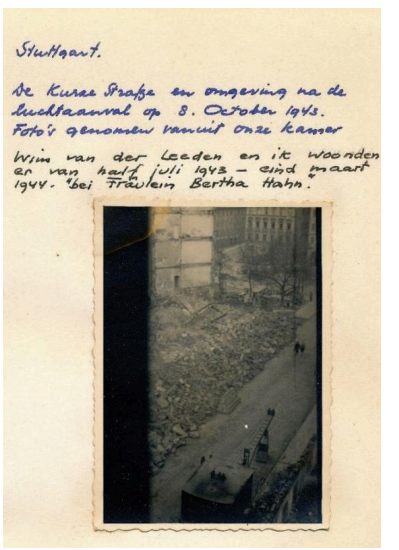 Stuttgart.
De Kurze Straße en omgeving na de
luchtaanval op 8. October 1943.
Foto's genomen vanuit onze kamer
Wim van der Leeden en ik woonden
er van half juli 1943 – eind maart
1944. "bei Fräulein Bertha Hahn."